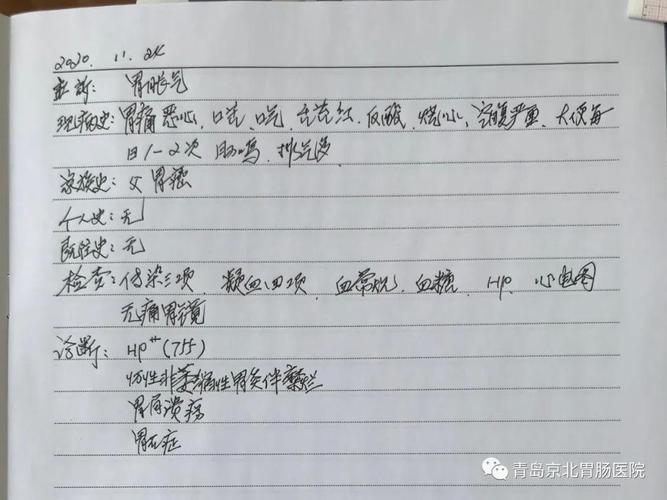 2020. 11. 24
主诉: 胃胀气
现病史: 胃痛 恶心、口苦、口气、舌苔红、反酸、烧心、空腹严重、大便每
日1-2次 肠鸣、排气多
家族史: 父 胃癌
个人史: 无
既往史: 无
检查: 传染三项、凝血四项、血常规、血糖、HP、心电图
无痛胃镜
诊断: HP++ (755)
慢性非萎缩性胃炎伴糜烂
胃溃疡
胃石症
青岛京北胃肠医院